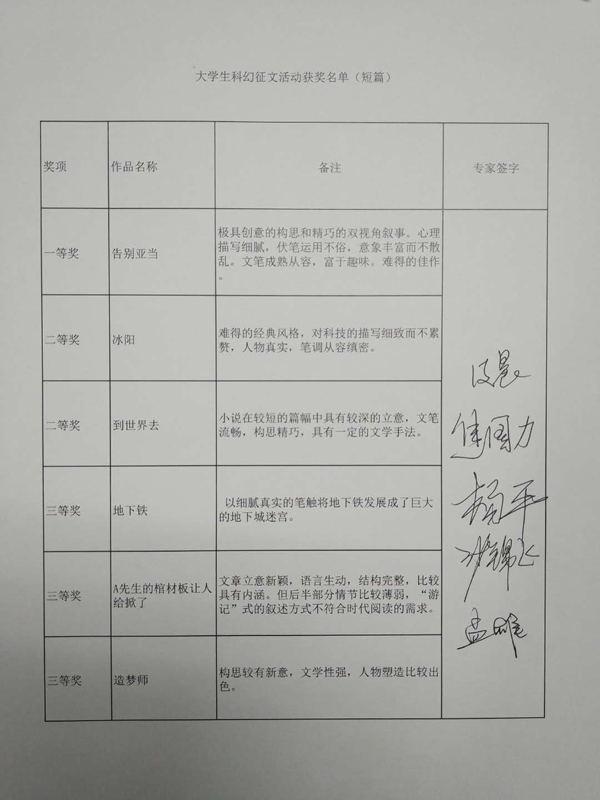 大学生科幻征文活动获奖名单（短篇）
奖项 作品名称 备注 专家签字
一等奖 告别亚当 极具创意的构思和精巧的双视角叙事。心理
描写细腻，伏笔运用不俗，意象丰富而不散
乱。文笔成熟从容，富于趣味。难得的佳作
。
二等奖 冰阳 难得的经典风格，对科技的描写细致而不累
赘，人物真实，笔调从容缜密。
二等奖 到世界去 小说在较短的篇幅中具有较深的立意，文笔
流畅，构思精巧，具有一定的文学手法。
三等奖 地下铁 以细腻真实的笔触将地下铁发展成了巨大
的地下城迷宫。
三等奖 A先生的棺材板让人
给掀了 文章立意新颖，语言生动，结构完整，比较
具有内涵。但后半部分情节比较薄弱，“游
记”式的叙述方式不符合时代阅读的需求。
三等奖 造梦师 构思较有新意，文学性强，人物塑造比较出
色。
凌晨
杨平